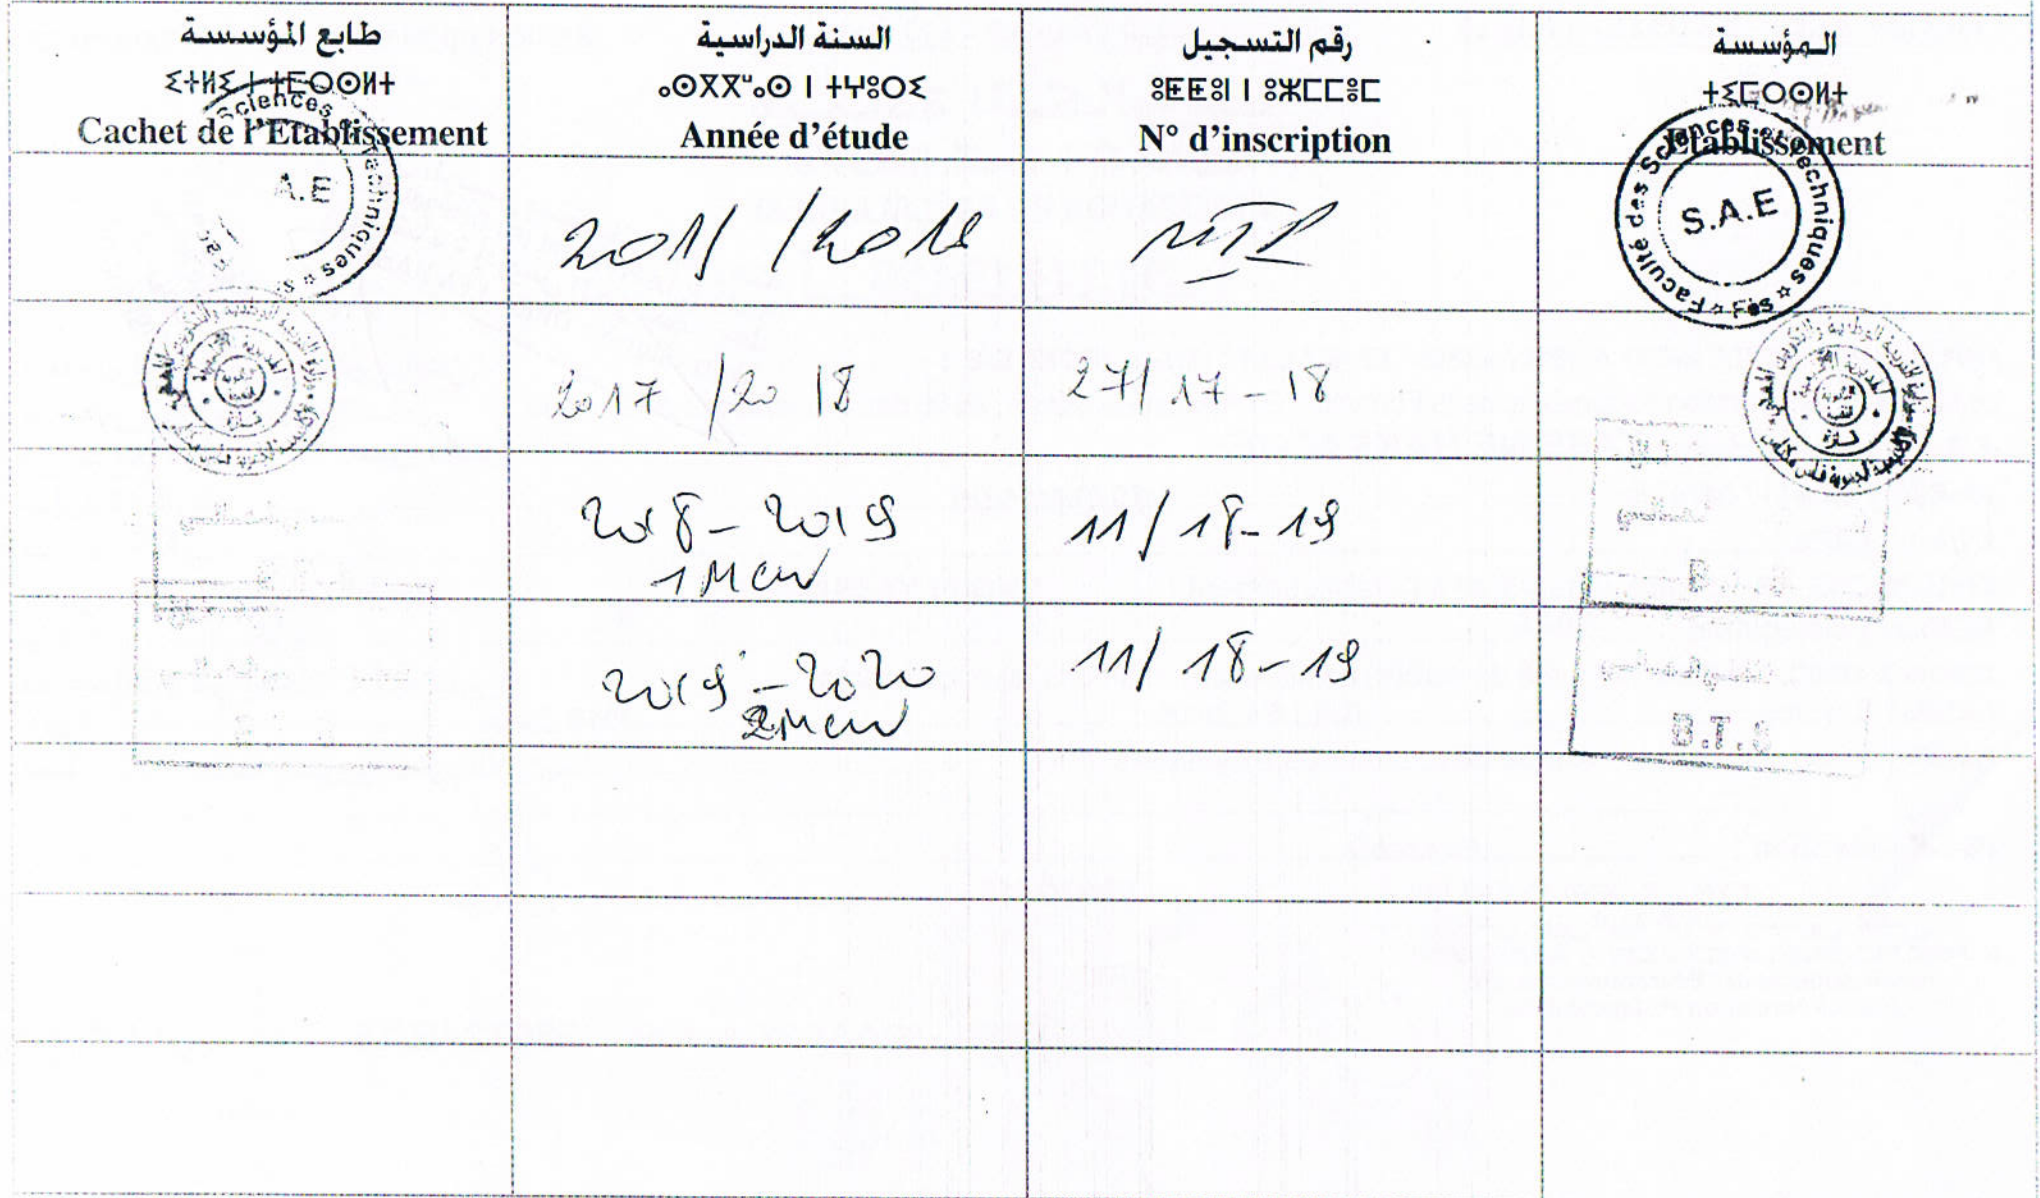 طابع المؤسسة
ⵉⵜⵍⵉ ⵏ ⵜⵎⵔⵙⵍⵜ
Cachet de l'Etablissement
السنة الدراسية
ⴰⵙⴳⴳⵯⴰⵙ ⵏ ⵜⵖⵓⵔⵉ
Année d'étude
رقم التسجيل
ⵓⵟⵟⵓⵏ ⵏ ⵓⵣⵎⵎⵓⵎ
N° d'inscription
المؤسسة
ⵜⵉⵎⵔⵙⵍⵜ
Etablissement
Sciences et Techniques
A.E
MIP
Faculté des Sciences et Techniques ☆ Fès ☆
S.A.E
2017 / 20 18
27/ 17 - 18
2018 - 2019
1 MCW
11 / 18 - 19
2019 - 2020
2MCW
11 / 18 - 19
B.T.S